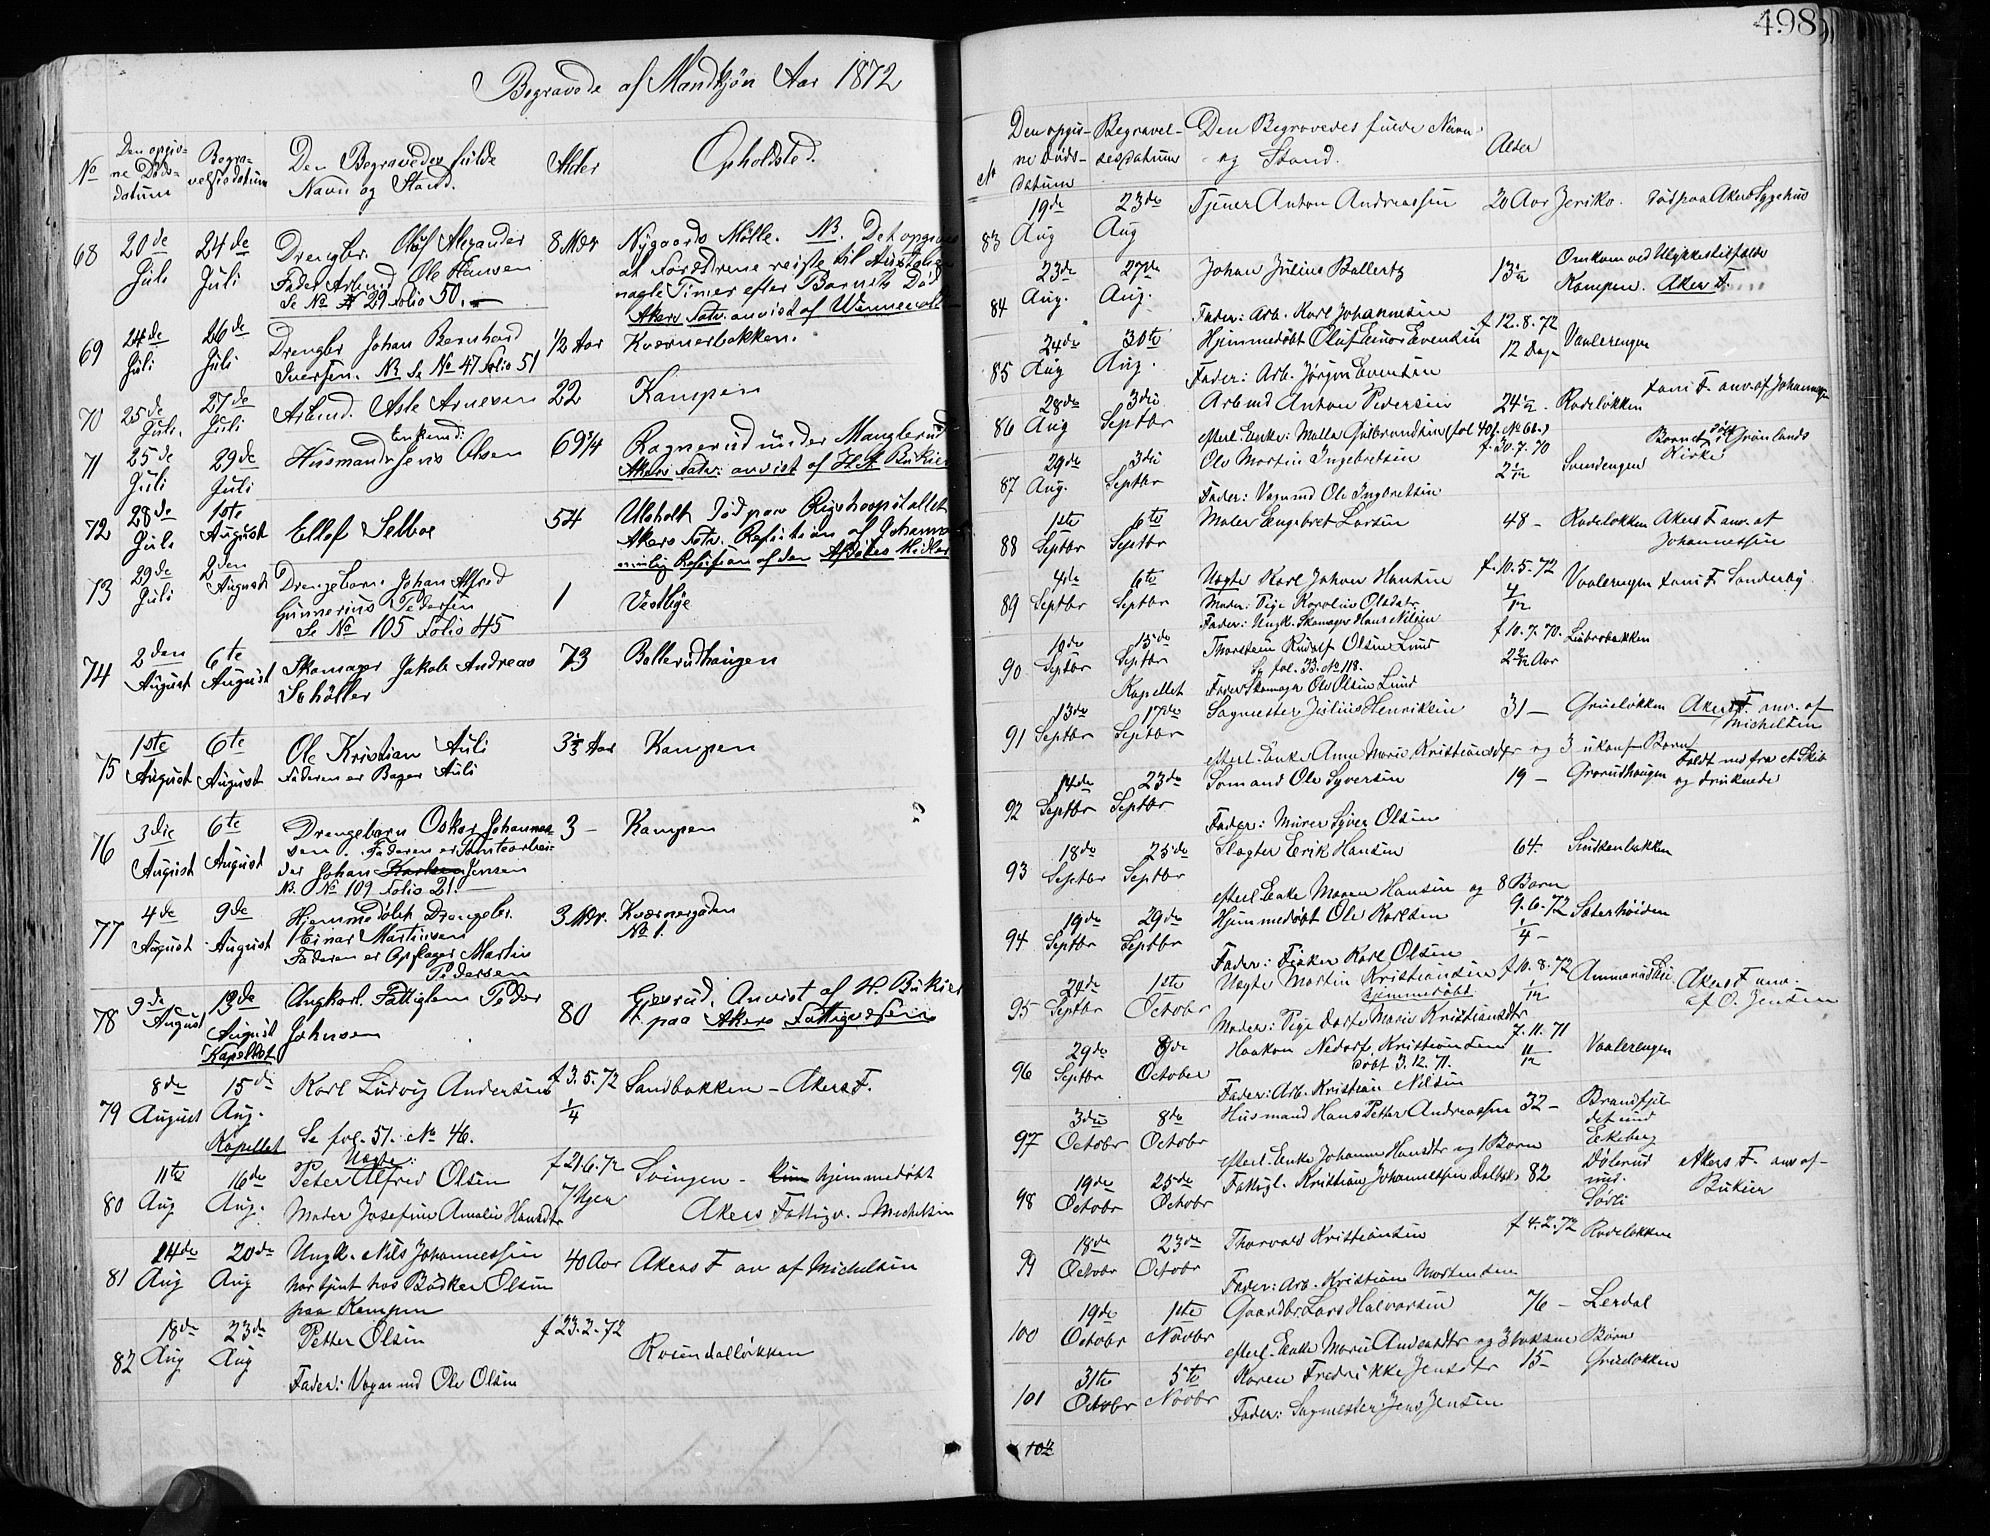 Begravede af Mandkjøn Aar 1872
No
Den opgiv-
ne Døds-
datum
Begra-
velsesdatum
Den Begravedes fulde
Navn og Stand.
Alder
Opholdsted.
68
20de
Juli
24de
Juli
Drengbr. Olaf Alexander
Fader Arbmd Ole Hansen
Se No 29 Folio 50.
8 Mdr
Nygaards Mølle. NB. Det opgives
at Forældrene reiste til
nogle Timer efter Barnets Død
Akers Fatv. anvist af
69
24de
Juli
26de
Juli
Drengbr Johan Bernhard
Iversen. NB Se No 47 Folio 51
1/2 Aar
Kværnerbakken.
70
25de
Juli.
27de
Juli
Arbmd. Asle Arnesen
22
Kampen
71
25de
Juli
29de
Juli
Enkemd:
Husmand Jens Olsen
69 3/4
Ragnerud under Manglerud
Akers Fatv: anvist af H. A. Bukier
72
28de
Juli
1ste
August
Ellef Selboe
54
Ulsholt Død paa Rigshospitallet
Akers Fatv. af
af den Afdødes Midler
73
29de
Juli
2den
August
Drengebarn Johan Alfred
Gunnerius Pedersen
Se No 105 Folio 45
1
Vestbye
74
2den
August
6te
August
Skomager Jakob Andreas
Schøller
73
Bollerudhaugen
75
1ste
August
6te
August
Ole Kristian Auli
Faderen er Bager Auli
3 1/2 Aar
Kampen
76
3die
August
6te
August
Drengebarn Oskar Johannes-
sen. Faderen er Tomtearbei-
der Johan Karlsen Jensen
NB. No 109 Folio 21
3 -
Kampen
77
4de
August
9de
August
Hjemmedøbt Drengebr.
Einar Martinsen
Faderen er Opslager Martin
Pedersen
3 Mdr.
Kværnergaden
No 1.
78
9de
August
13de
August
Kapellet
Ungkarl. Fattiglem Peder
Johnsen
80
Gjersrud. Anvist af H. Bukier
paa Akers Fattigvæsen
79
8de
August
15de
Aug.
Kapellet
Karl Ludvig Andersen
Se fol. 51. No 46.
f 3.5.72
1/4
Sandbakken - Akers F.
80
11te
Aug
16de
Aug.
Uægte:
Peter Alfred Olsen
Moder Josefine Amalie Hansdtr
f 21.6.72
7 Uger
Svingen - hjemmedøbt
Akers Fattigv. Michelsen
81
14de
Aug
20de
Aug
Ungk. Nils Johannessen
har tjent hos Bødker Olsen
paa Kampen
40 Aar
Akers F an af Michelsen
82
18de
Aug
23de
Aug
Petter Olsen
Fader: Vognmd Ole Olsen
f 23.2.72
Rosendalløkken
498
No
Den opgiv-
ne Døds-
datum
Begravel-
sesdatum
Den Begravedes fulde Navn
og Stand.
Alder
83
19de
Aug
23de
Aug
Tjener Anton Andreassen
20 Aar
Jeriko.
død paa Akers Sygehus
84
23de
Aug.
27de
Aug.
Johan Julius Ballertz
Fader: Arb. Karl Johannesen
13 1/2
Omkom ved Ulykkestilfælde
Kampen. Akers F.
85
24de
Aug
30te
Aug.
Hjemmedøbt Oluf Einar Evensen
Fader: Arb. Jørgen Evensen
f 12.8.72
12 Dage
Vaalerengen
86
28de
Aug
3die
Septbr
Arbmd Anton Pedersen
efterl. Enke: Mathea Gulbrandsen (fol 40 f. No 66.)
24 1/2.
Rodeløkken
F. anv. af Johannessen
87
29de
Aug.
3die
Septbr
Ole Martin Ingebretsen
Fader: Vognmd Ole Ingebretsen
f. 30.7.70
2 1/12
Svendengen
Barnet døbt i Grønlands
Kirke
88
1ste
Septbr
6te
Septbr
Maler Engebret Larsen
48 -
Rodeløkken
Akers F anv. af
Johannessen
89
4de
Septbr
6te
Septbr
Uægte Karl Johan Hansen
Moder: Pige Karoline Olsdatr
Fader: Ungk. Skomager Hans Nilsen
f. 10.5.72
4/12
Vaalerengen
F. Sonderby
90
10de
Septbr
15de
Septbr
Kapellet
Thorstein Rudolf Olsen Lund
Se fol. 33. No 118.
Fader Skomager Ole Olsen Lund
f 10.7.70.
2 2/12 Aar
Lødrebakken
91
13de
Septbr
17de
Septbr
Sagmester Julius Henriksen
efterl. Enke Anne Marie Kristiansdtr og 3 ukonf Børn
31 -
Grüeløkken
Akers F. anv. af
Michelsen
92
14de
Septbr
23de
Septbr
Sømand Ole Syversen
Fader: Murer Syver Olsen
19 -
Grorudhaugen
Faldt ned fra et Skib
og druknede
93
18de
Septbr
25de
Septbr
Slagter Erik Hansen
efterl Enke Maren Hansen og 8 Børn
64.
Sinkenbakken
94
19de
Septbr
29de
Septbr
Hjemmedøbt Ole Karlsen
Fader: Fisker Karl Olsen
9.6.72
1/4 -
Sæterhøiden
95
24de
Septbr
1ste
October
Uægte Martin Kristiansen
hjemmedøbt
Moder: Pige Marie Kristiansdtr
f 10.8.72
1/12
Ammerud Eie
Akers F anv.
af O. Jensen
96
29de
Septbr
8de
October
Haakon Kristiansen
døbt 3.12.71.
Fader: Arb. Kristian Nilsen
7.11.71
11/12
Vaalerengen
97
3die
Octobr
8de
Octobr
Husmand Hans Petter Andreassen
efterl. Enke Johanne Hansdtr og 1 Barn
32 -
Brandfjel-
det und
Ekeberg
98
19de
Octobr
25de
Octobr
Fattigl. Kristian Johannessen
82
Dølerud
und.
Akers F. anv af
Bukier
99
18de
Octobr
23de
Octobr
Thorvald Kristiansen
Fader: Arb. Kristian Mortensen
f 4.2.72
Rodeløkken
100
19de
Octobr
1ste
Novbr
Gaardbr. Lars Halvorsen
efterl. Enke Marie Andersdtr og 3 voksne Børn
76 -
Lerdal
101
31te
Octobr
5te
Novbr
Karen Fredrikke Jensdtr
Fader: Sagmester Jens Jensen
15 -
Grüeløkken
102